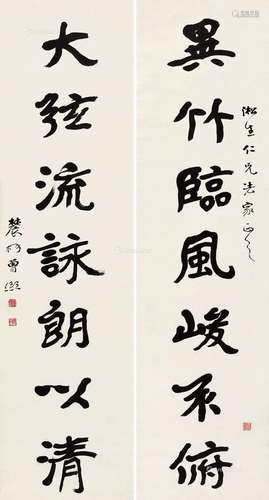 異竹臨風峻不俯
淞生仁兄法家正之
大弦流詠朗以清
農髯曾熙